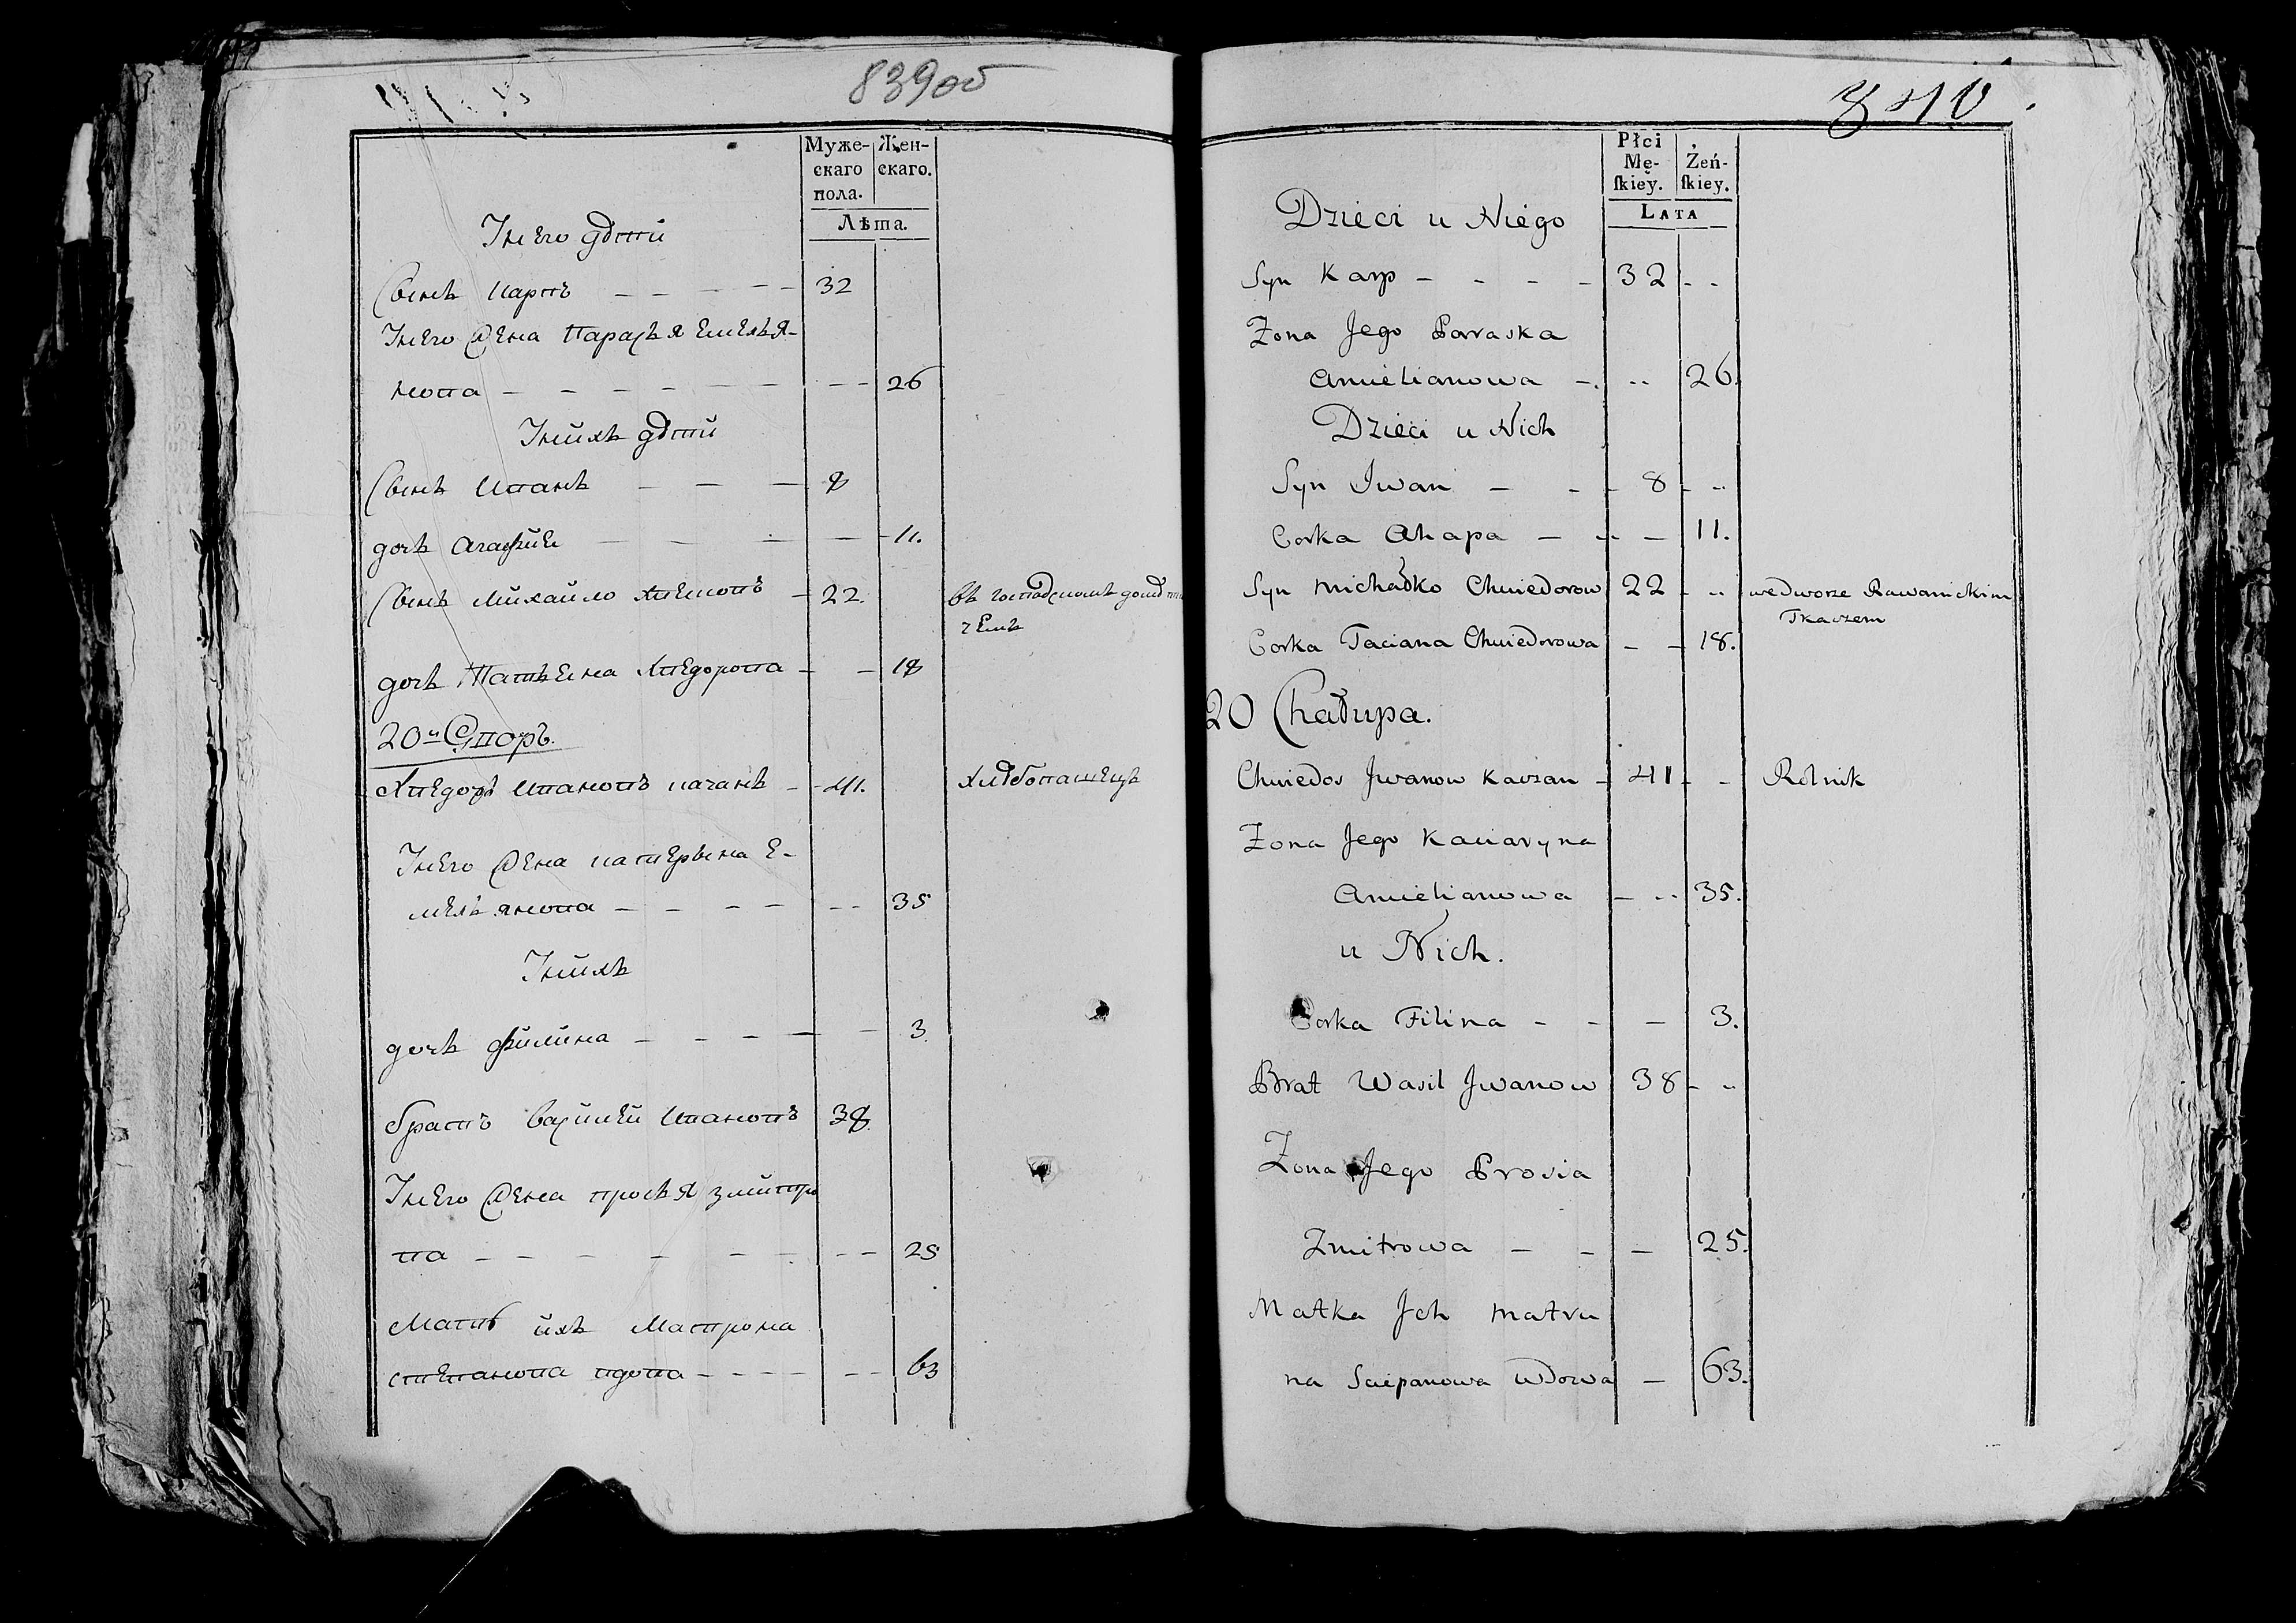 839об
Муже- Жен-
скаго скаго.
пола.
Лѣта.
Унего дѣти
Сынъ Карпъ 32
Унего Жена Парасья Емелья-
нова 26
Унихъ дѣти
Сынъ Иванъ 8
дочь Агафия 11.
Сынъ Михайло 22. въ господскомъ
дочь Татьяна Хведорова 18
20й Дворъ.
Хведоръ Ивановъ Качанъ 41. хлѣбопашецъ
Унего Жена Катерына Е-
мельянова 35
Унихъ
дочь Филина 3.
братъ Василей Ивановъ 38.
Унего Жена Просья Змитро
ва 25
Мать ихъ Матрона
степанова вдова 63
840.
Płci
Mę- Żeń-
skiey. skiey.
LATA
Dzieci u Niego
Syn Karp 32
Zona Jego Paraska
Amielianowa 26.
Dzieci u Nich
Syn Iwan 8
Corka Ahapa 11.
Syn Michałko Chwiedorow 22 we dworze Rawanickim
Tkaczem
Corka Taciana Chwiedorowa 18.
20 Chałupa.
Chwiedor Jwanow Kaczan 41 Rolnik
Zona Jego Kaciaryna
Amielianowa 35.
u Nich.
Corka Filina 3.
Brat Wasil Jwanow 38
Zona Jego Prosia
Zmitrowa 25.
Matka Jch Matru
na Sciepanowa Wdowa 63.